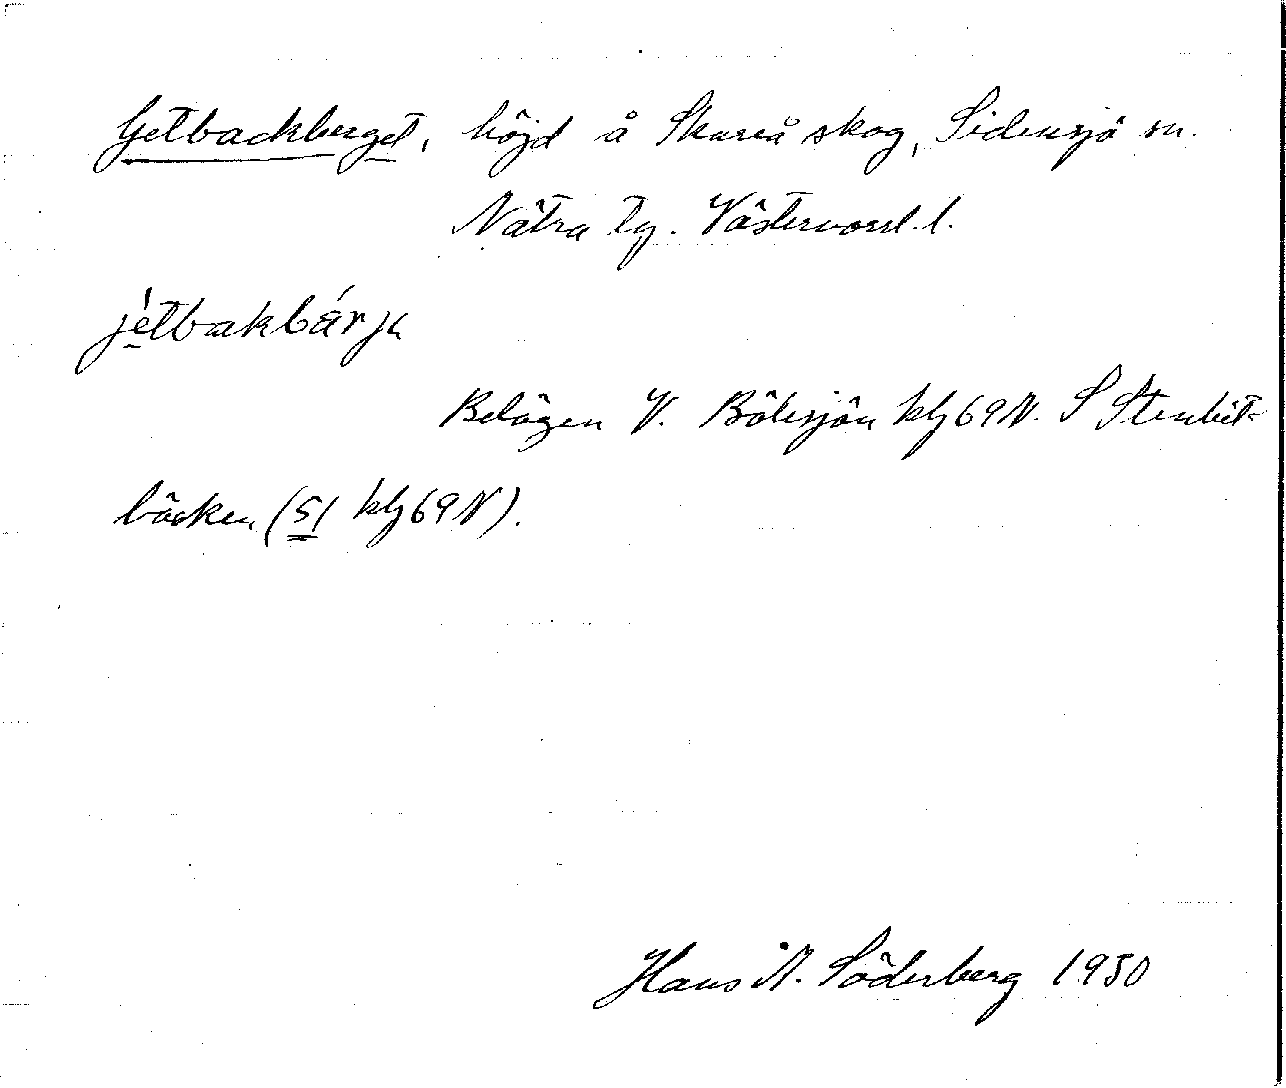 Getbackberget, höjd å Skureå skog, Sidensjö sn.
Nätra tg. Västernorrl. l.
jétbakbárjə
Belägen V. Bölesjön klj69N. S Stenbit-
bäcken (51 klj69N).
Hans A. Söderberg 1930